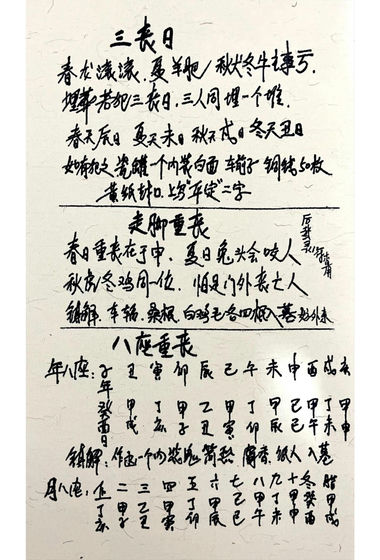 三丧日
春龙滚滚.夏羊肥/秋犬冬牛主事亏.
埋葬若犯三丧日.三人同埋一个堆.
春天辰日 夏天未日 秋天戌日 冬天丑日
如有犯之 瓷罐一个内装白面 车前子 铜钱50枚
黄纸封口.上写"平定"二字
走脚重丧
春日重丧在子中.夏日兔头会咬人
秋虎冬鸡同一位.怕是门外丧亡人
镇解.车辐.桑根.白鸡毛各四根入墓
八座重丧
年八座:子年 丑 寅 卯 辰 巳 午 未 申 酉 戌 亥
癸酉日 甲戌 丁亥 甲子 乙丑 甲寅 丁卯 甲辰 己巳 甲午 丁未 甲申
镇解:作 一个内装 纸人 入墓
月八座:正 二 三 四 五 六 七 八 九 十 冬 腊
丁亥 甲子 乙丑 甲寅 丁卯 甲辰 己巳 甲午 丁未 甲申 癸酉 甲戌